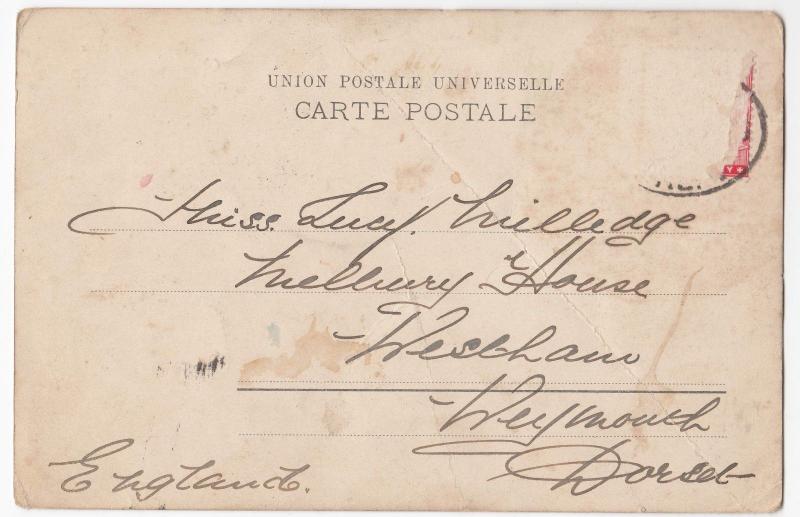 UNION POSTALE UNIVERSELLE
CARTE POSTALE
Miss. Lucy. Milledge
Melbury House
Westham
Weymouth
Dorset
England.